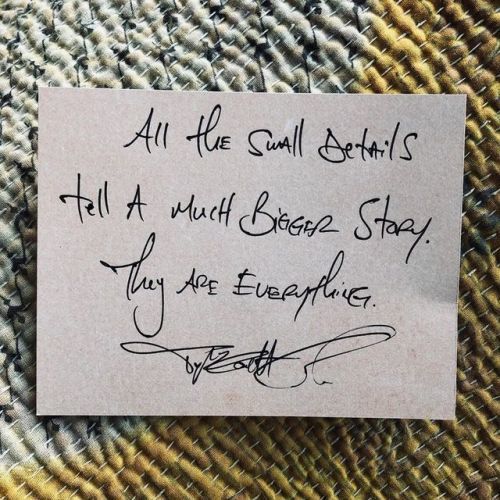 All the Small Details
tell A much Bigger Story.
They Are Everything.